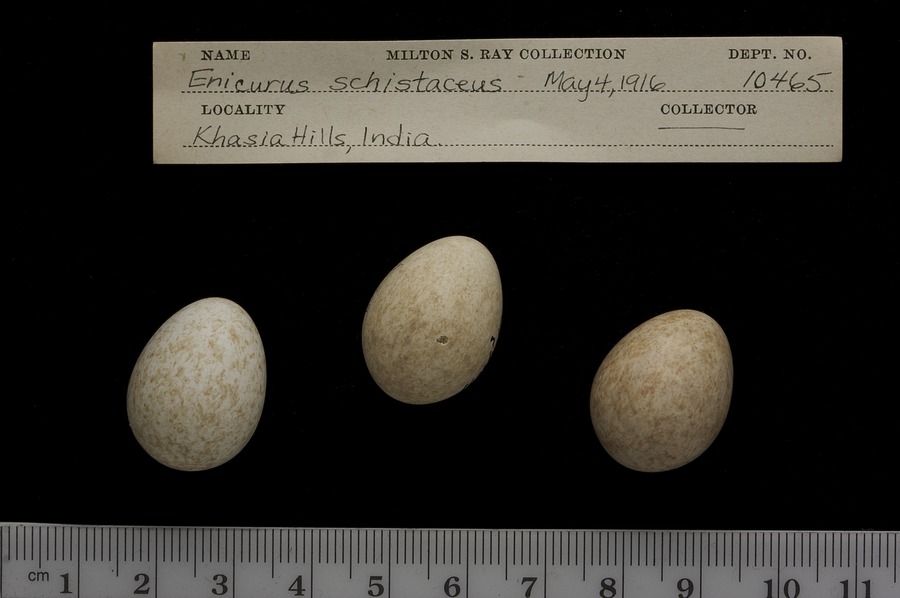 NAME MILTON S. RAY COLLECTION DEPT. NO.
Enicurus schistaceus - May 4, 1916 10465
LOCALITY COLLECTOR
Khasia Hills, India.
cm 1 2 3 4 5 6 7 8 9 10 11